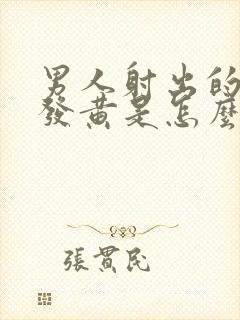 男人射出的
發黃是怎麼
張貫民